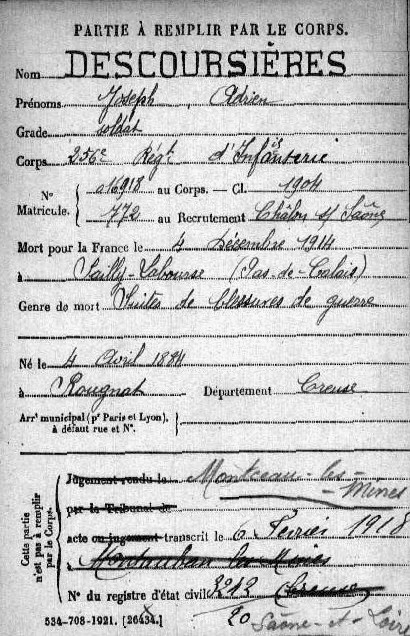 PARTIE À REMPLIR PAR LE CORPS.
Nom DESCOURSIÈRES
Prénoms Joseph, Adrien
Grade soldat
Corps 256e Régt d'Infanterie
N° Matricule. { 016918 au Corps. — Cl. 1904
772 au Recrutement Châlon s/ Saône
Mort pour la France le 4 Décembre 1914
à Sailly-Labourse (Pas-de-Calais)
Genre de mort Suites de blessures de guerre
Né le 4 Avril 1884
à Rougnat Département Creuse
Arrt municipal (pr Paris et Lyon), à défaut rue et N°.
Cette partie n'est pas à remplir par le Corps.
Jugement rendu le Montceau-les-Mines
par le Tribunal de
acte ou jugement transcrit le 6 Février 1918
à Montauban les Mines
N° du registre d'état civil 3212 Creuse
20 Saône-et-Loire
534-708-1921. [26434.]